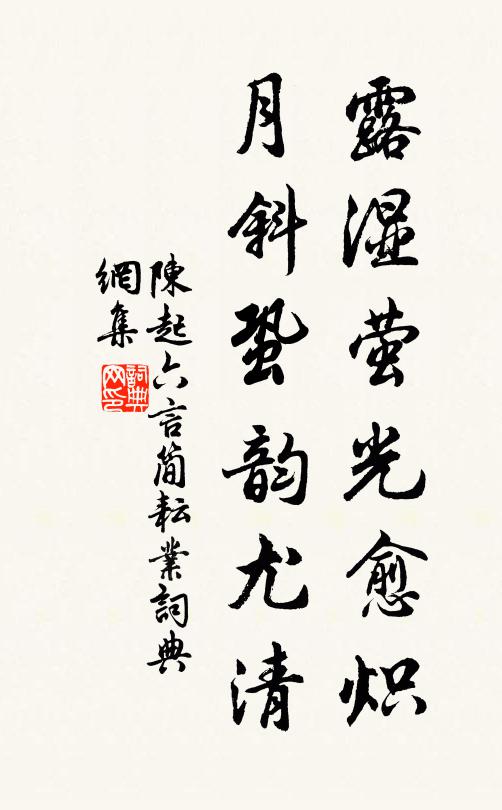 露湿萤光愈炽
月斜蛩韵尤清
陳起六言简耘業詞典
網集
詞典网印